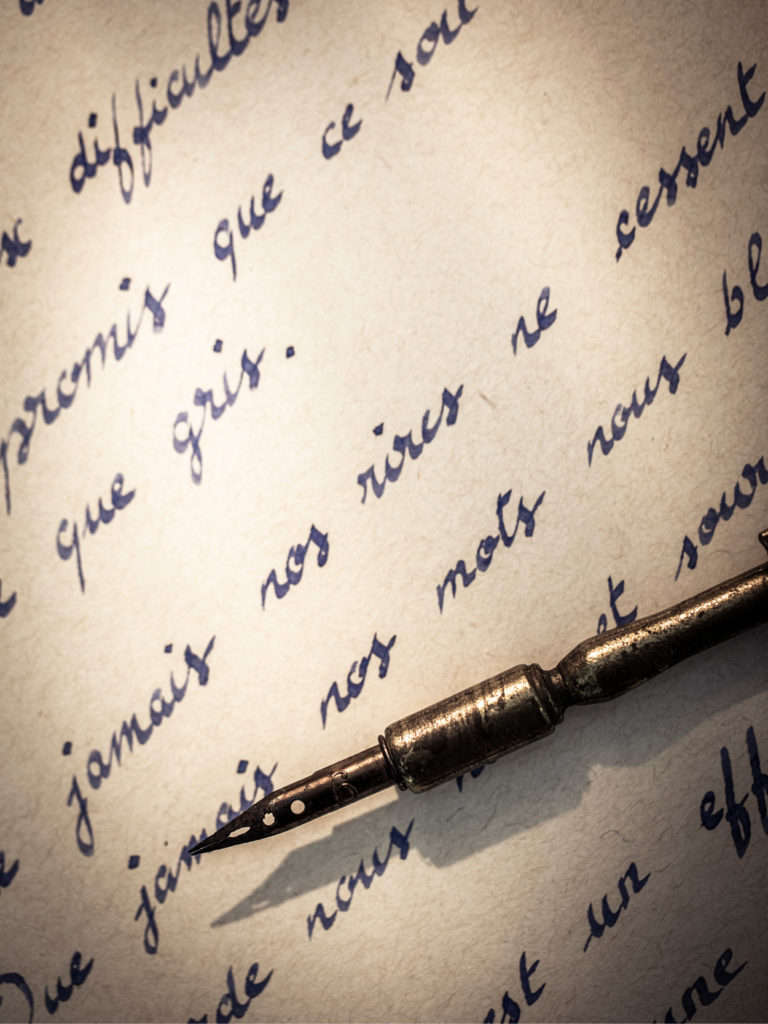 difficultés
promis que ce sou
que gris.
jamais nos rires ne cessent
Que jamais nos mots nous bl
rde nous et sour
est un eff
une